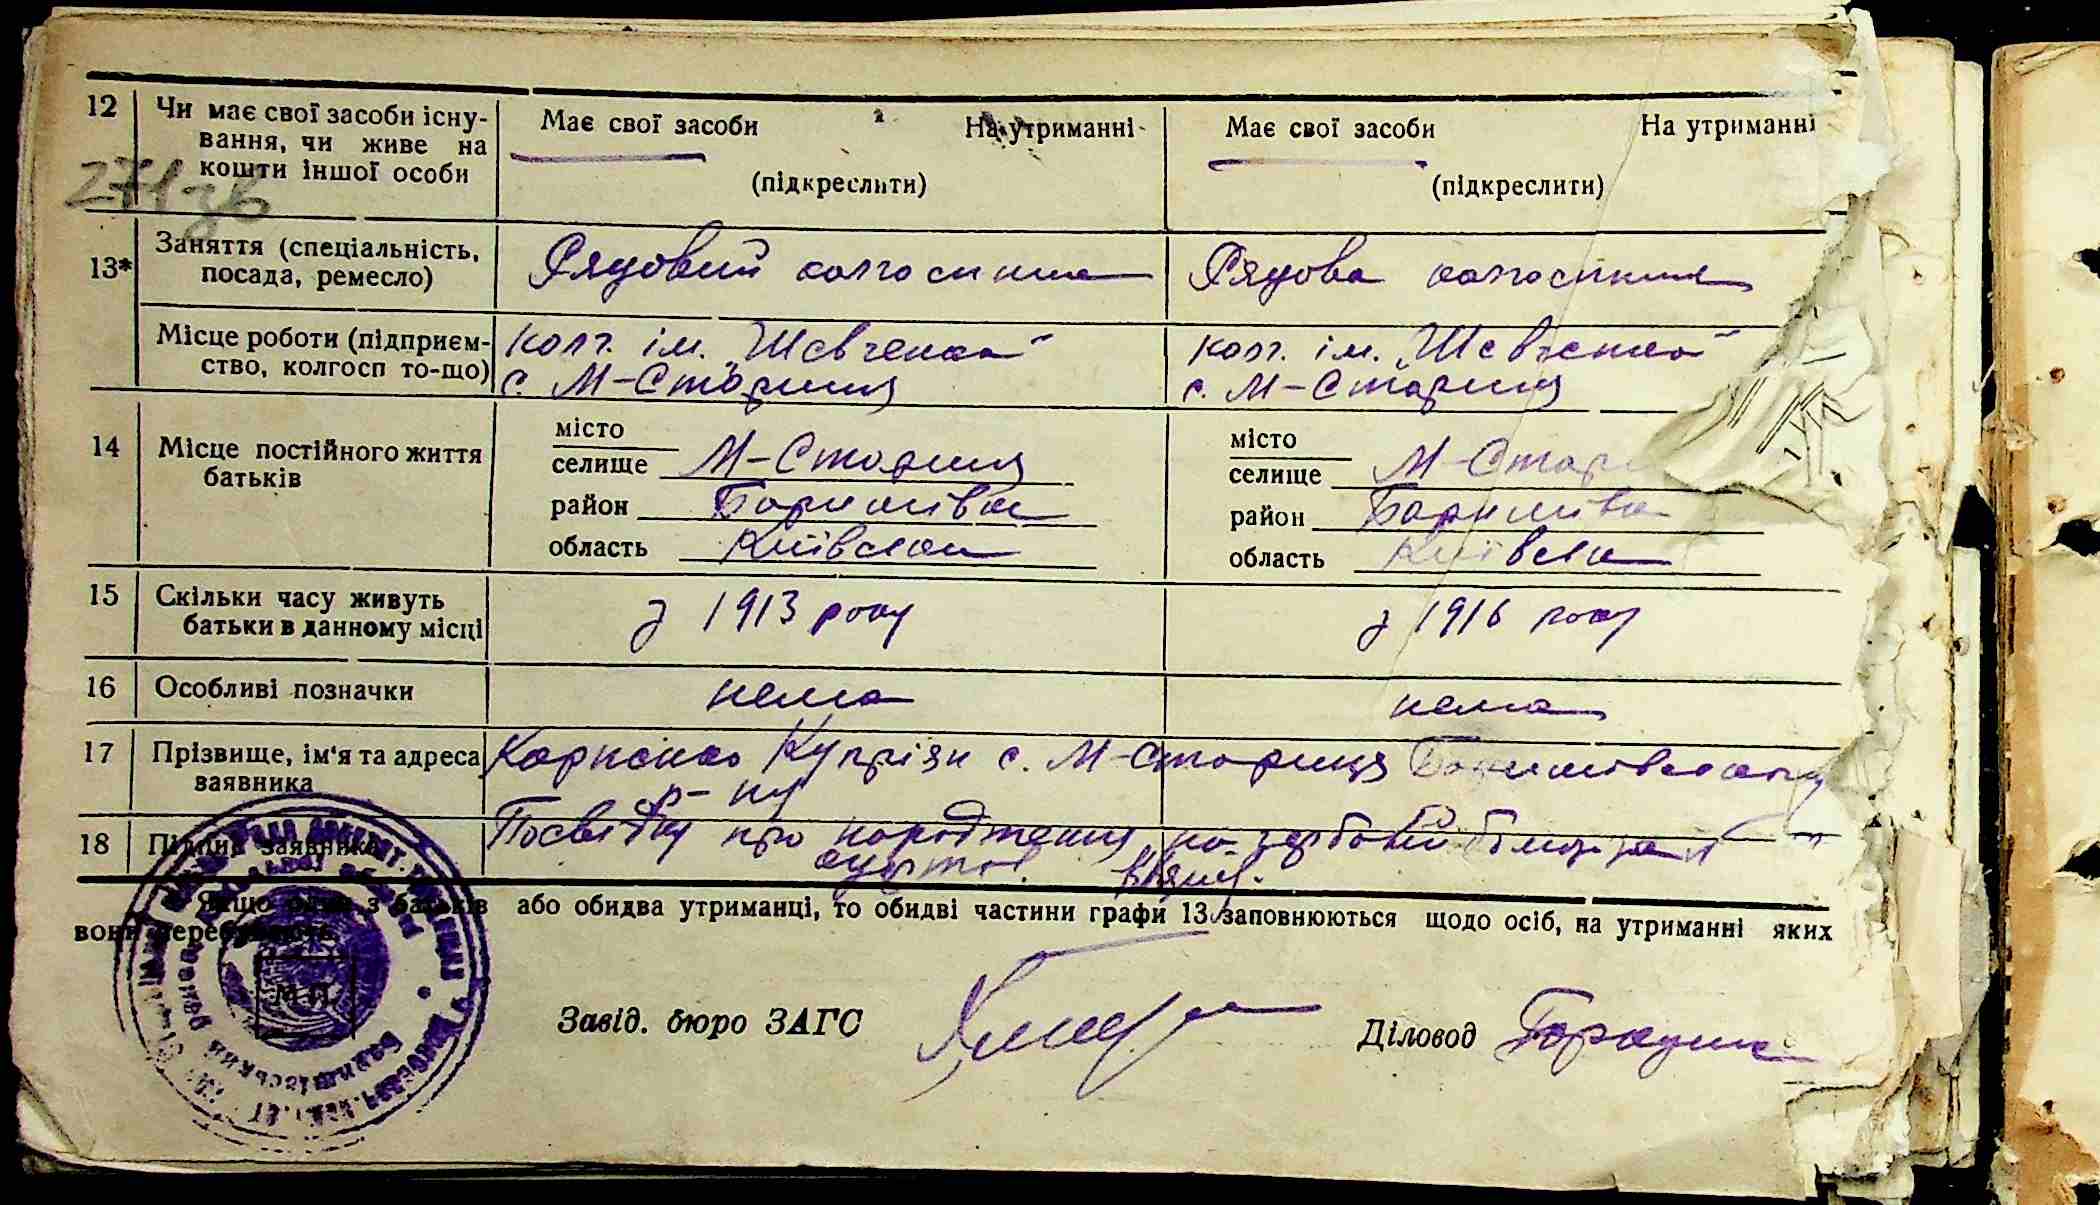 12 Чи має свої засоби існу- Має свої засоби На утриманні Має свої засоби На утриманні
вання, чи живе на
кошти іншої особи (підкреслити) (підкреслити)
271зв
13* Заняття (спеціальність, Рядовий колгоспник Рядова колгоспниця
посада, ремесло)
Місце роботи (підприєм- колг. ім. "Шевченка" колг. ім. "Шевченка"
ство, колгосп то-що) с. М-Стариця с. М-Стариця
14 Місце постійного життя місто місто
батьків селище М-Стариця селище М-Стари
район Баришівка район Баришівка
область Київська область Київська
15 Скільки часу живуть з 1913 року з 1916 року
батьки в данному місці
16 Особливі позначки нема нема
17 Прізвище, ім'я та адреса Карпенко Купріян с. М-Стариця Баришівського
заявника р-ну
18 Підпис заявника Посвідку про народження на гербовій
Якщо один з батьків або обидва утриманці, то обидві частини графи 13 заповнюються щодо осіб, на утриманні яких
вони перебувають.
М.П.
Баришівський
Завід. бюро ЗАГС Діловод